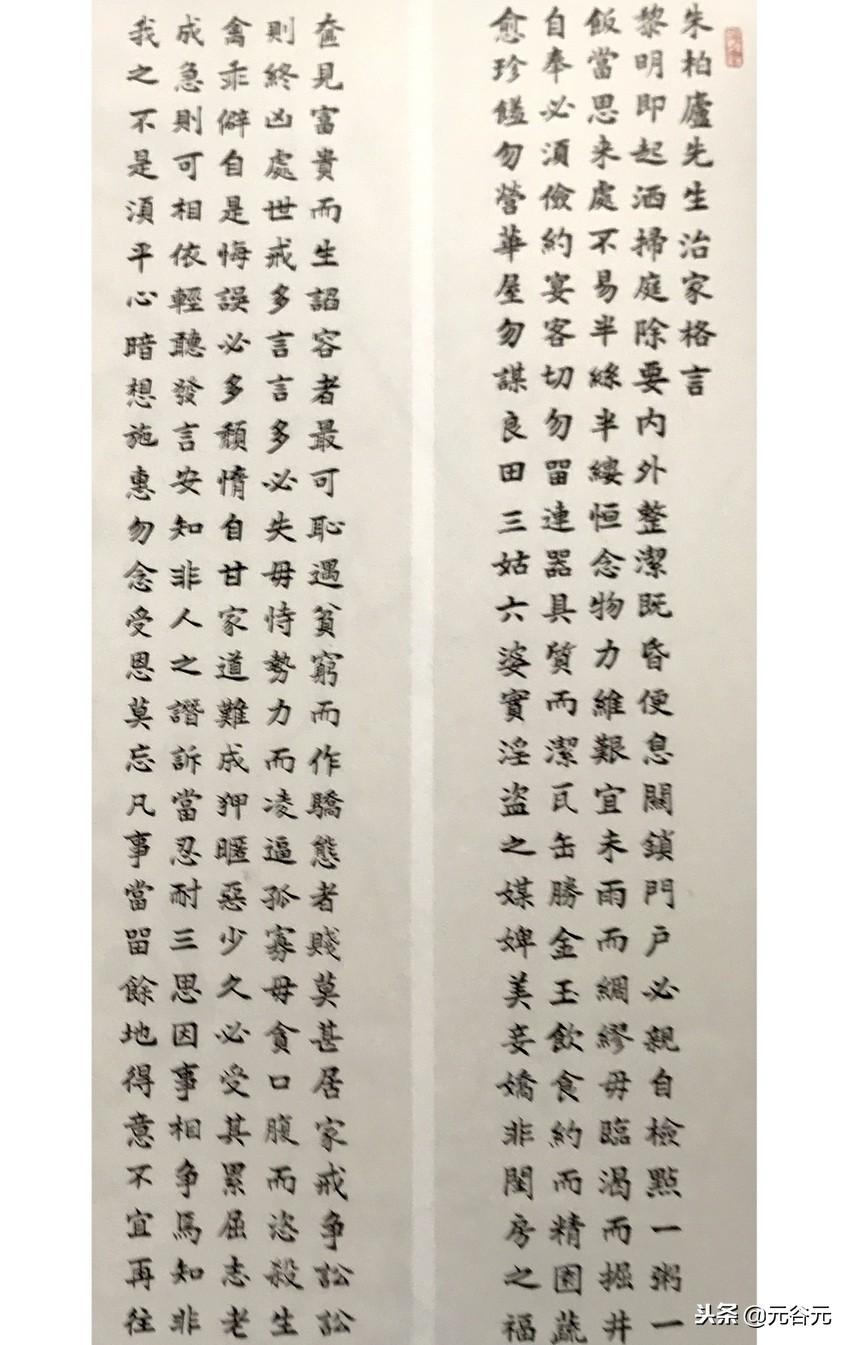 朱柏廬先生治家格言
黎明即起洒掃庭除要内外整潔既昏便息關鎖門戶必親自檢點一粥一
飯當思来處不易半絲半縷恒念物力維艱宜未雨而綢繆毋臨渴而掘井
自奉必須儉約宴客切勿留連器具質而潔瓦缶勝金玉飲食約而精園蔬
愈珍饈勿營華屋勿謀良田三姑六婆實淫盗之媒婢美妾嬌非閨房之福
奩見富貴而生諂容者最可恥遇貧窮而作驕態者賤莫甚居家戒争訟訟
則終凶處世戒多言言多必失毋恃勢力而凌逼孤寡毋貪口腹而恣殺生
禽乖僻自是悔誤必多頹惰自甘家道難成狎暱惡少久必受其累屈志老
成急則可相依輕聽發言安知非人之譖訴當忍耐三思因事相争焉知非
我之不是須平心暗想施惠勿念受恩莫忘凡事當留餘地得意不宜再往
头条 @元谷元